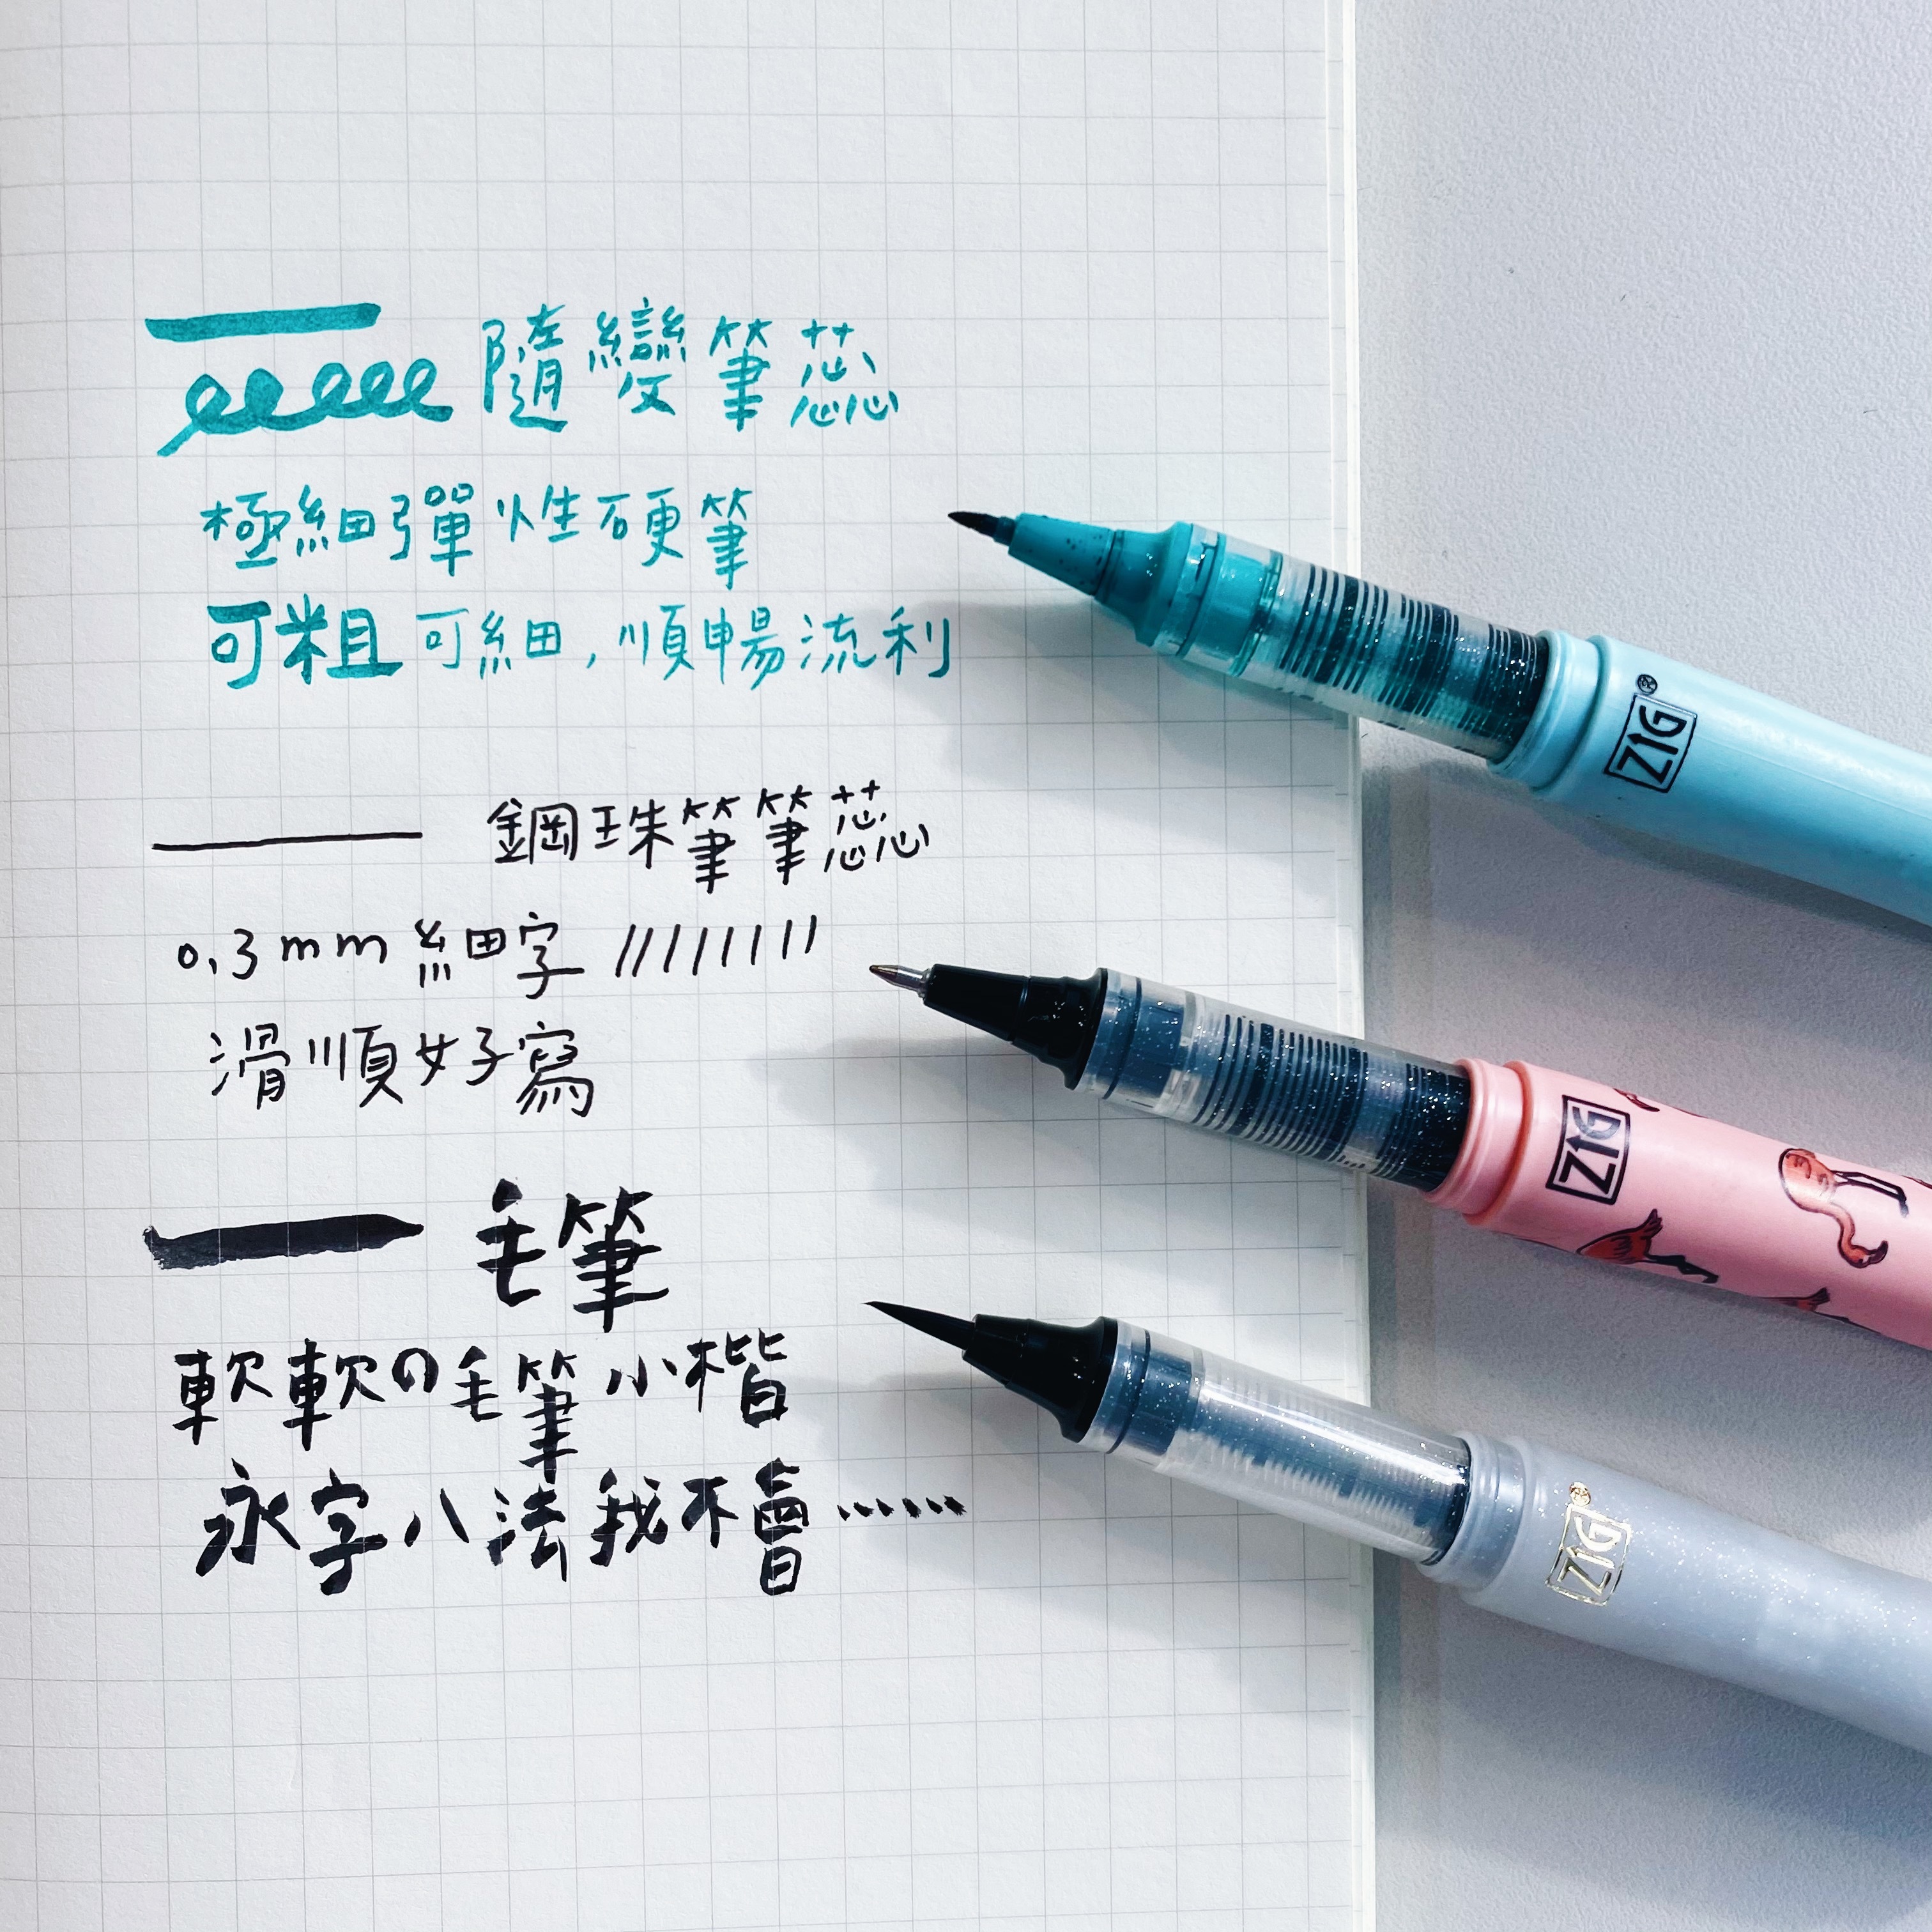 隨變筆蕊
極細彈性硬筆
可粗可細,順暢流利
鋼珠筆筆蕊
0.3mm 細字
滑順好寫
毛筆
軟軟の毛筆小楷
永字八法我不會……
ZIG®
ZIG
ZIG®